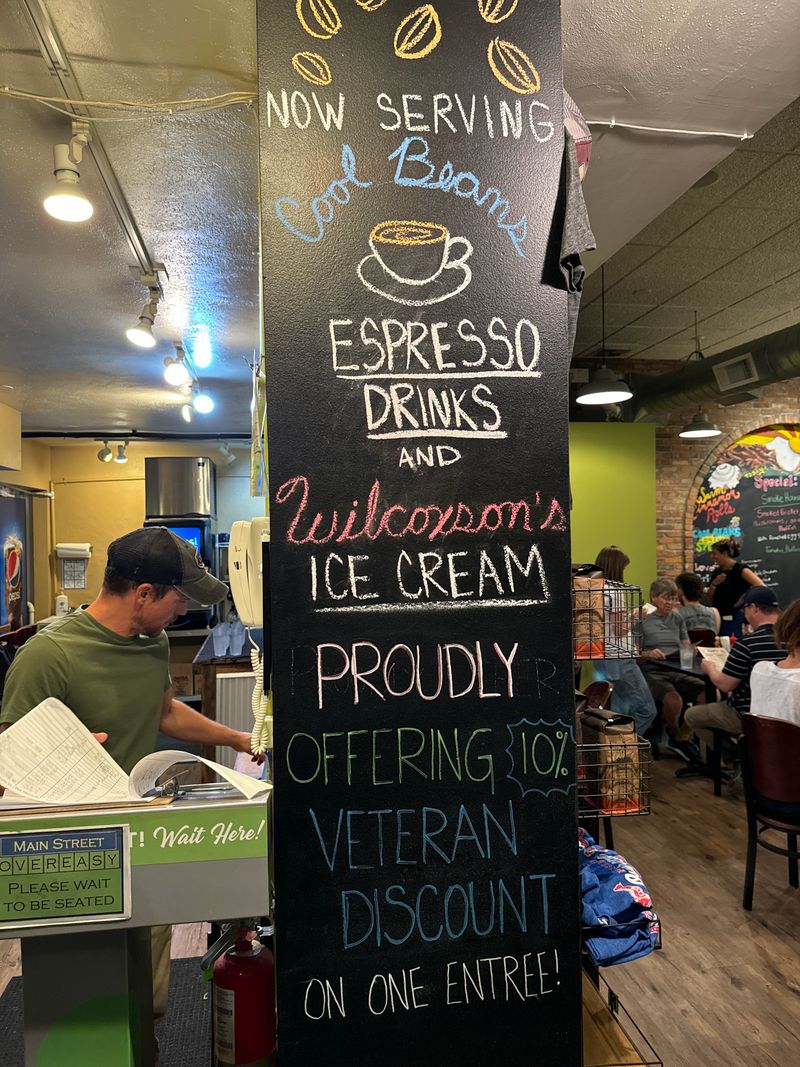 NOW SERVING
Cool Beans
ESPRESSO
DRINKS
AND
Wilcoxson's
ICE CREAM
PROUDLY
OFFERING 10%
VETERAN
DISCOUNT
ON ONE ENTREE!
T! Wait Here!
MAIN STREET
OVEREASY
PLEASE WAIT
TO BE SEATED
pepsi
Warm
Cinnamon
Rolls
Special: